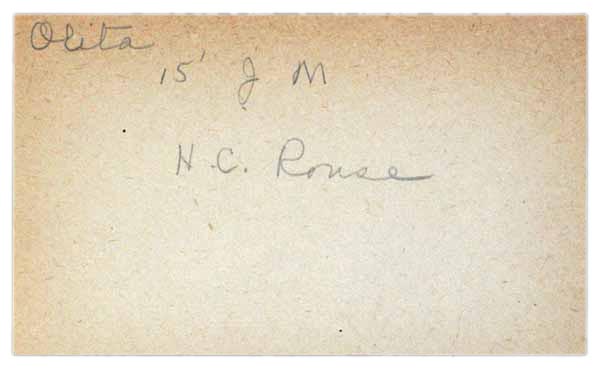 Olita
15' J M
H.C. Rouse